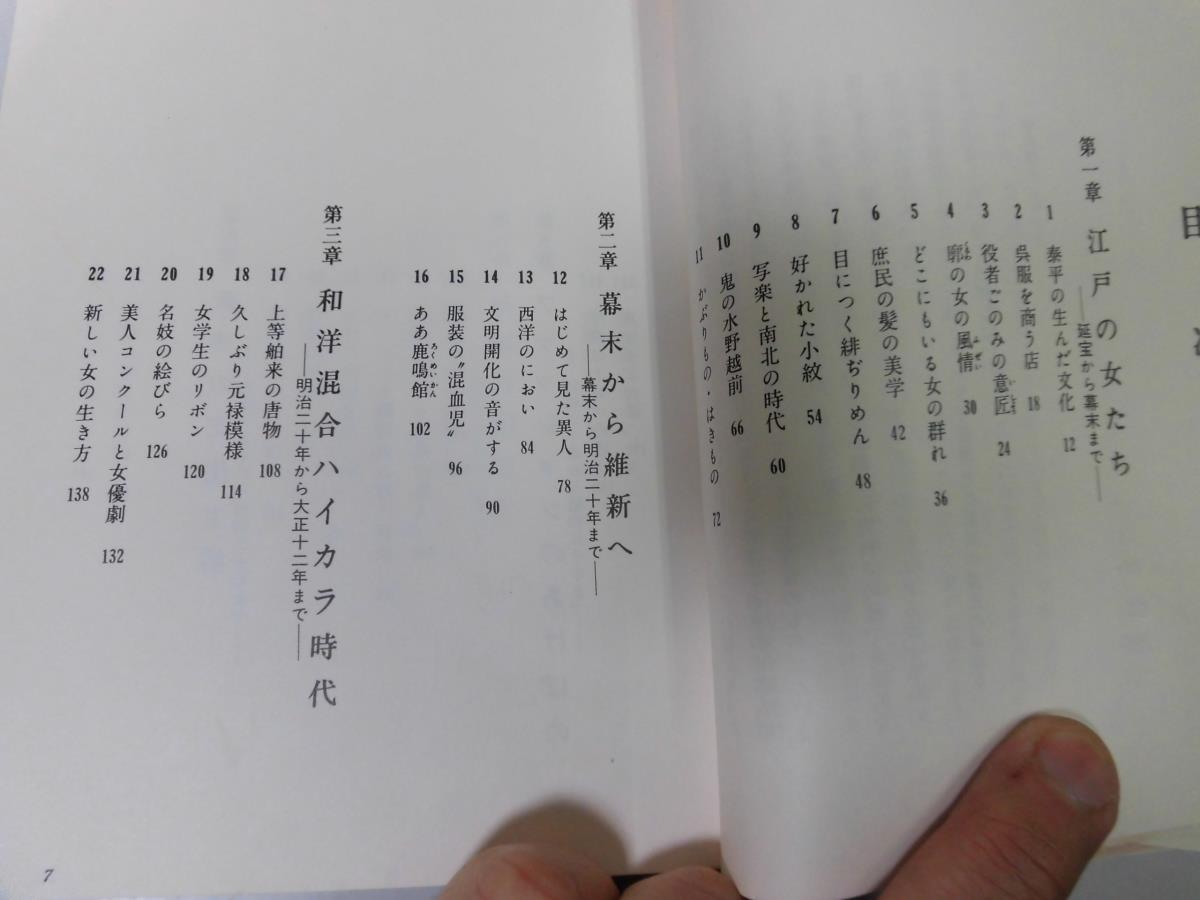 目次
第一章 江戸の女たち
――延宝から幕末まで――
1 泰平の生んだ文化 12
2 呉服を商う店 18
3 役者ごのみの意匠 24
4 廓の女の風情 30
5 どこにもいる女の群れ 36
6 庶民の髪の美学 42
7 目につく緋ぢりめん 48
8 好かれた小紋 54
9 写楽と南北の時代 60
10 鬼の水野越前 66
11 かぶりもの・はきもの 72
第二章 幕末から維新へ
――幕末から明治二十年まで――
12 はじめて見た異人 78
13 西洋のにおい 84
14 文明開化の音がする 90
15 服装の〝混血児〟 96
16 ああ鹿鳴館 102
第三章 和洋混合ハイカラ時代
――明治二十年から大正十二年まで――
17 上等舶来の唐物 108
18 久しぶり元禄模様 114
19 女学生のリボン 120
20 名妓の絵びら 126
21 美人コンクールと女優劇 132
22 新しい女の生き方 138
7